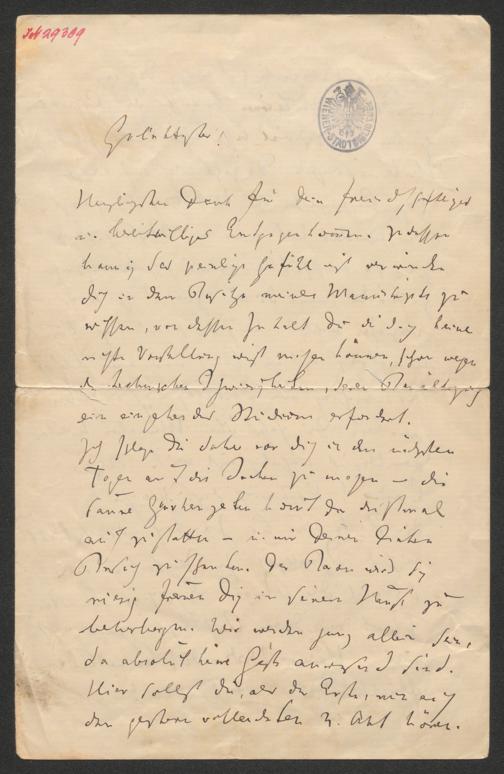 JN 29389
WIENER STADTBIBLIOTHEK
Geliebtester!
Herzlichsten Dank für dein freundschaftliches
u. bereitwilliges Entgegenkommen. Indessen
kann ich das peinliche Gefühl nicht verwinden
dich in dem Besitze meines Manuskripts zu
wissen, von dessen Inhalt du dir doch keine
rechte Vorstellung wirst machen können, schon wegen
der technischen Schwierigkeiten, deren Bewältigung
ein eingehendes Studium erfordert.
Ich schlage dir daher vor dich in den nächsten
Tagen auf die Socken zu machen — die
haust du diesmal
nicht gestatten — u. mir deinen lieben
Besuch zu schenken. Der Baron wird sich
riesig freuen dich in seinem Hause zu
beherbergen. Wir werden ganz allein sein,
da absolut keine Gäste anwesend sind.
Hier sollst du, als der Erste, nun auch
den gestern vollendeten 2. Akt hören.